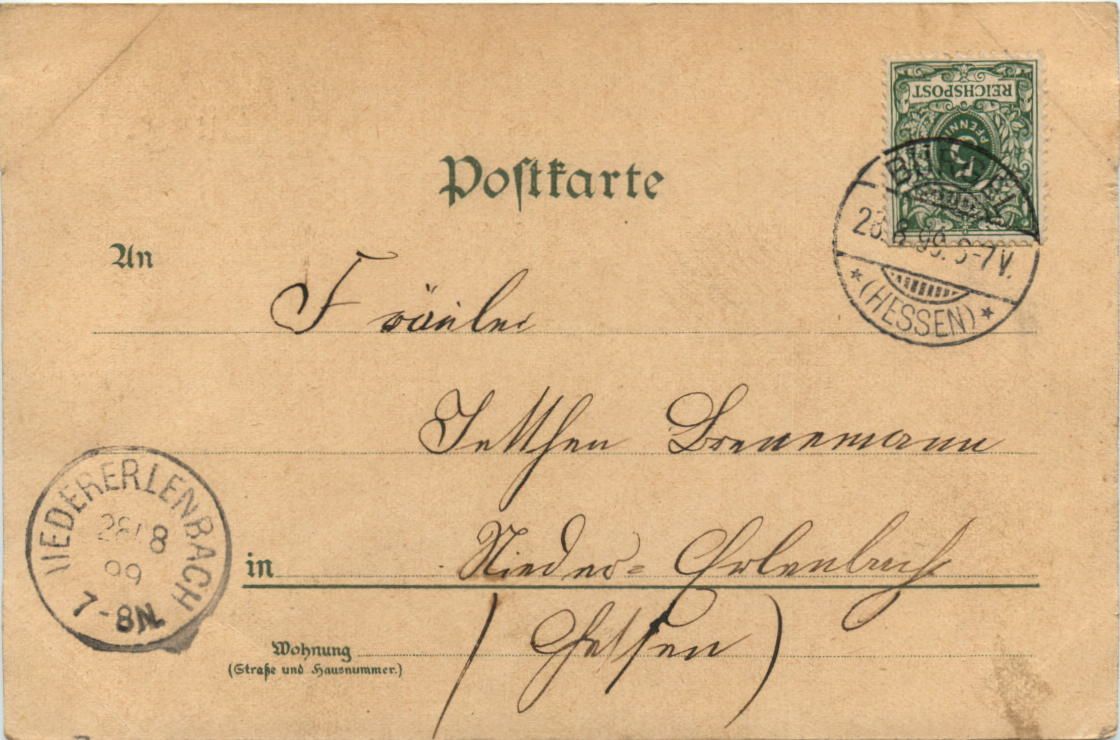 REICHSPOST
5
PFENNIG
Postkarte
An
28.8.99. 6-7V.
(HESSEN)
Fräulein
Jettchen
NIEDERERLENBACH
28/8
99
7-8N.
in Nieder-Erlenbach
(Hessen)
Wohnung
(Straße und Hausnummer.)